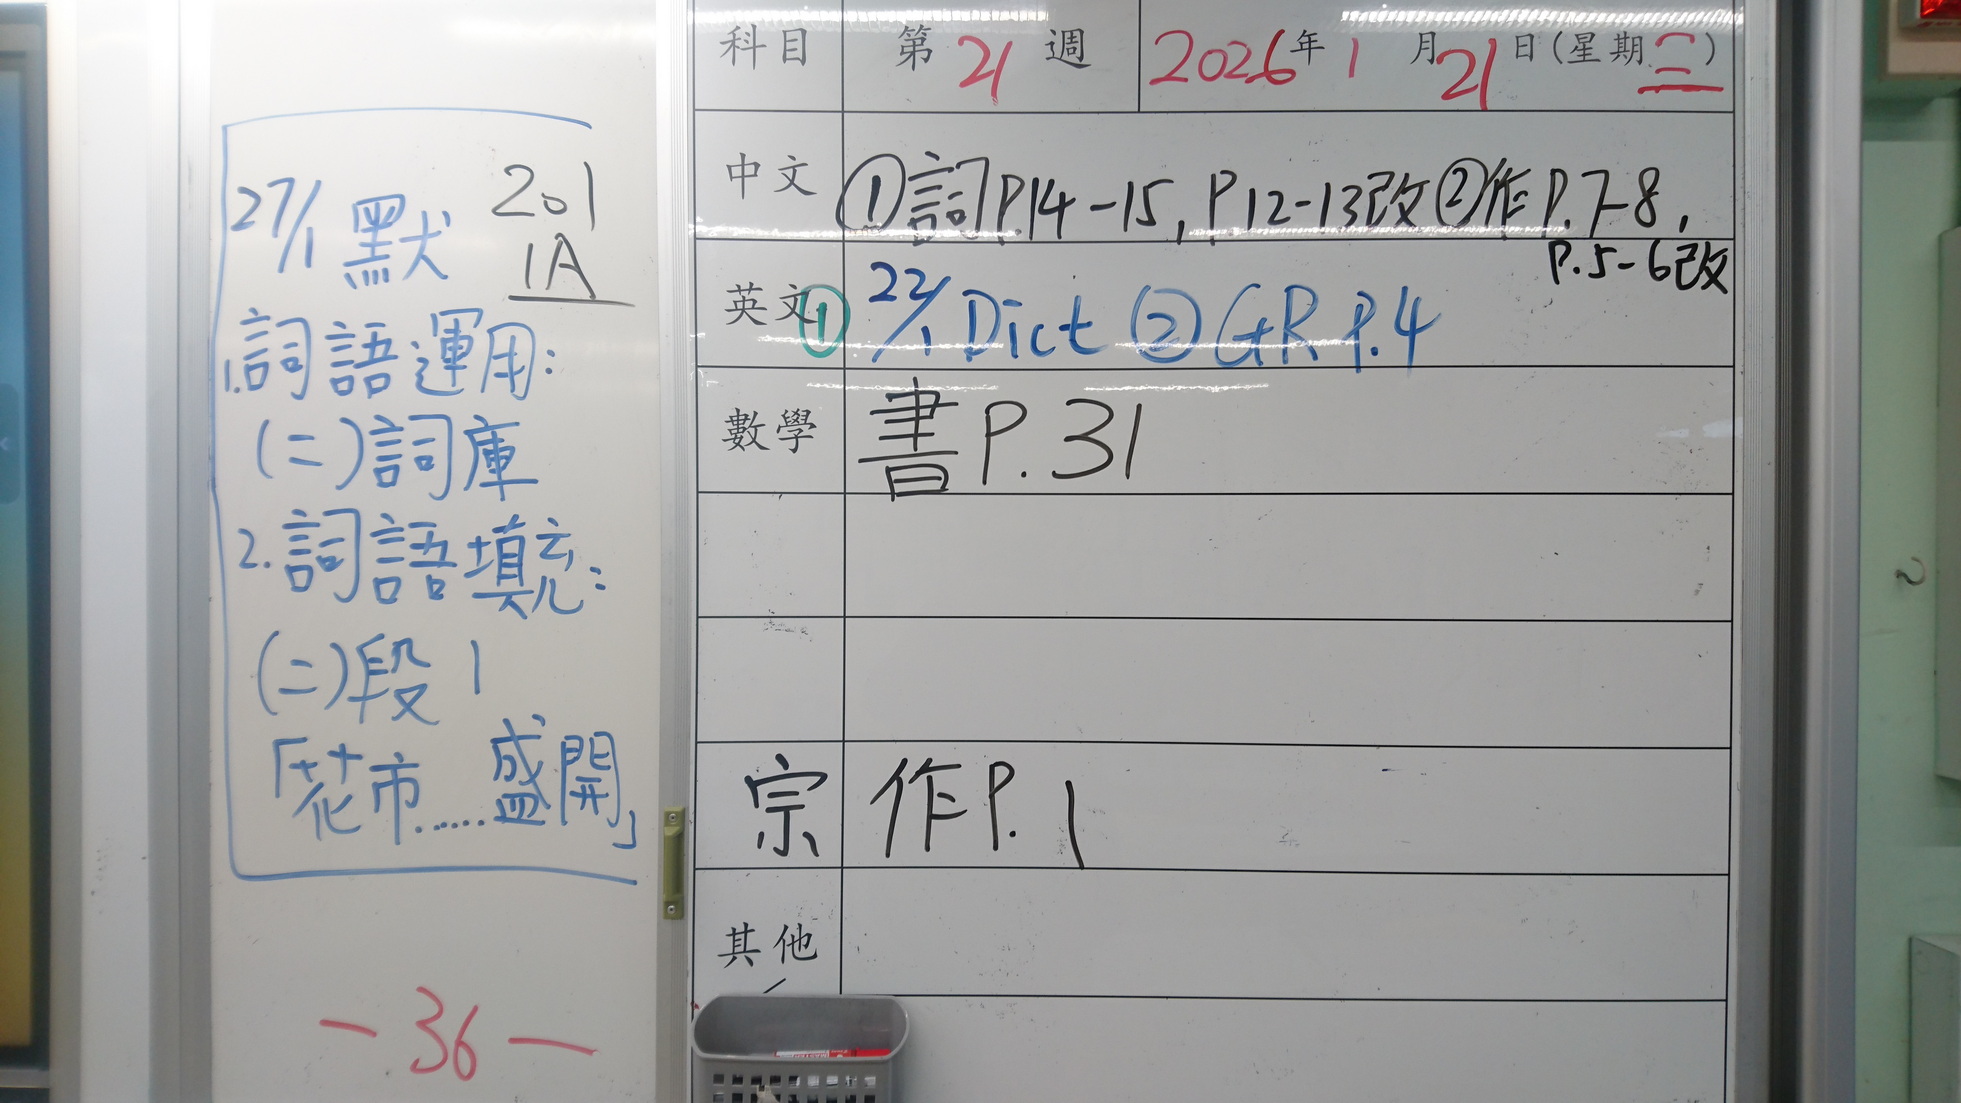 27/1 默
201
1A
1.詞語運用:
(二)詞庫
2.詞語填充:
(二)段1
「花市......盛開」
— 36 —
科目 第21週 2026年1月21日(星期三)
中文 ①詞P.14-15, P.12-13改②作P.7-8,
P.5-6改
英文 ① 22/1 Dict ② GR P.4
數學 書P.31
宗 作P.1
其他